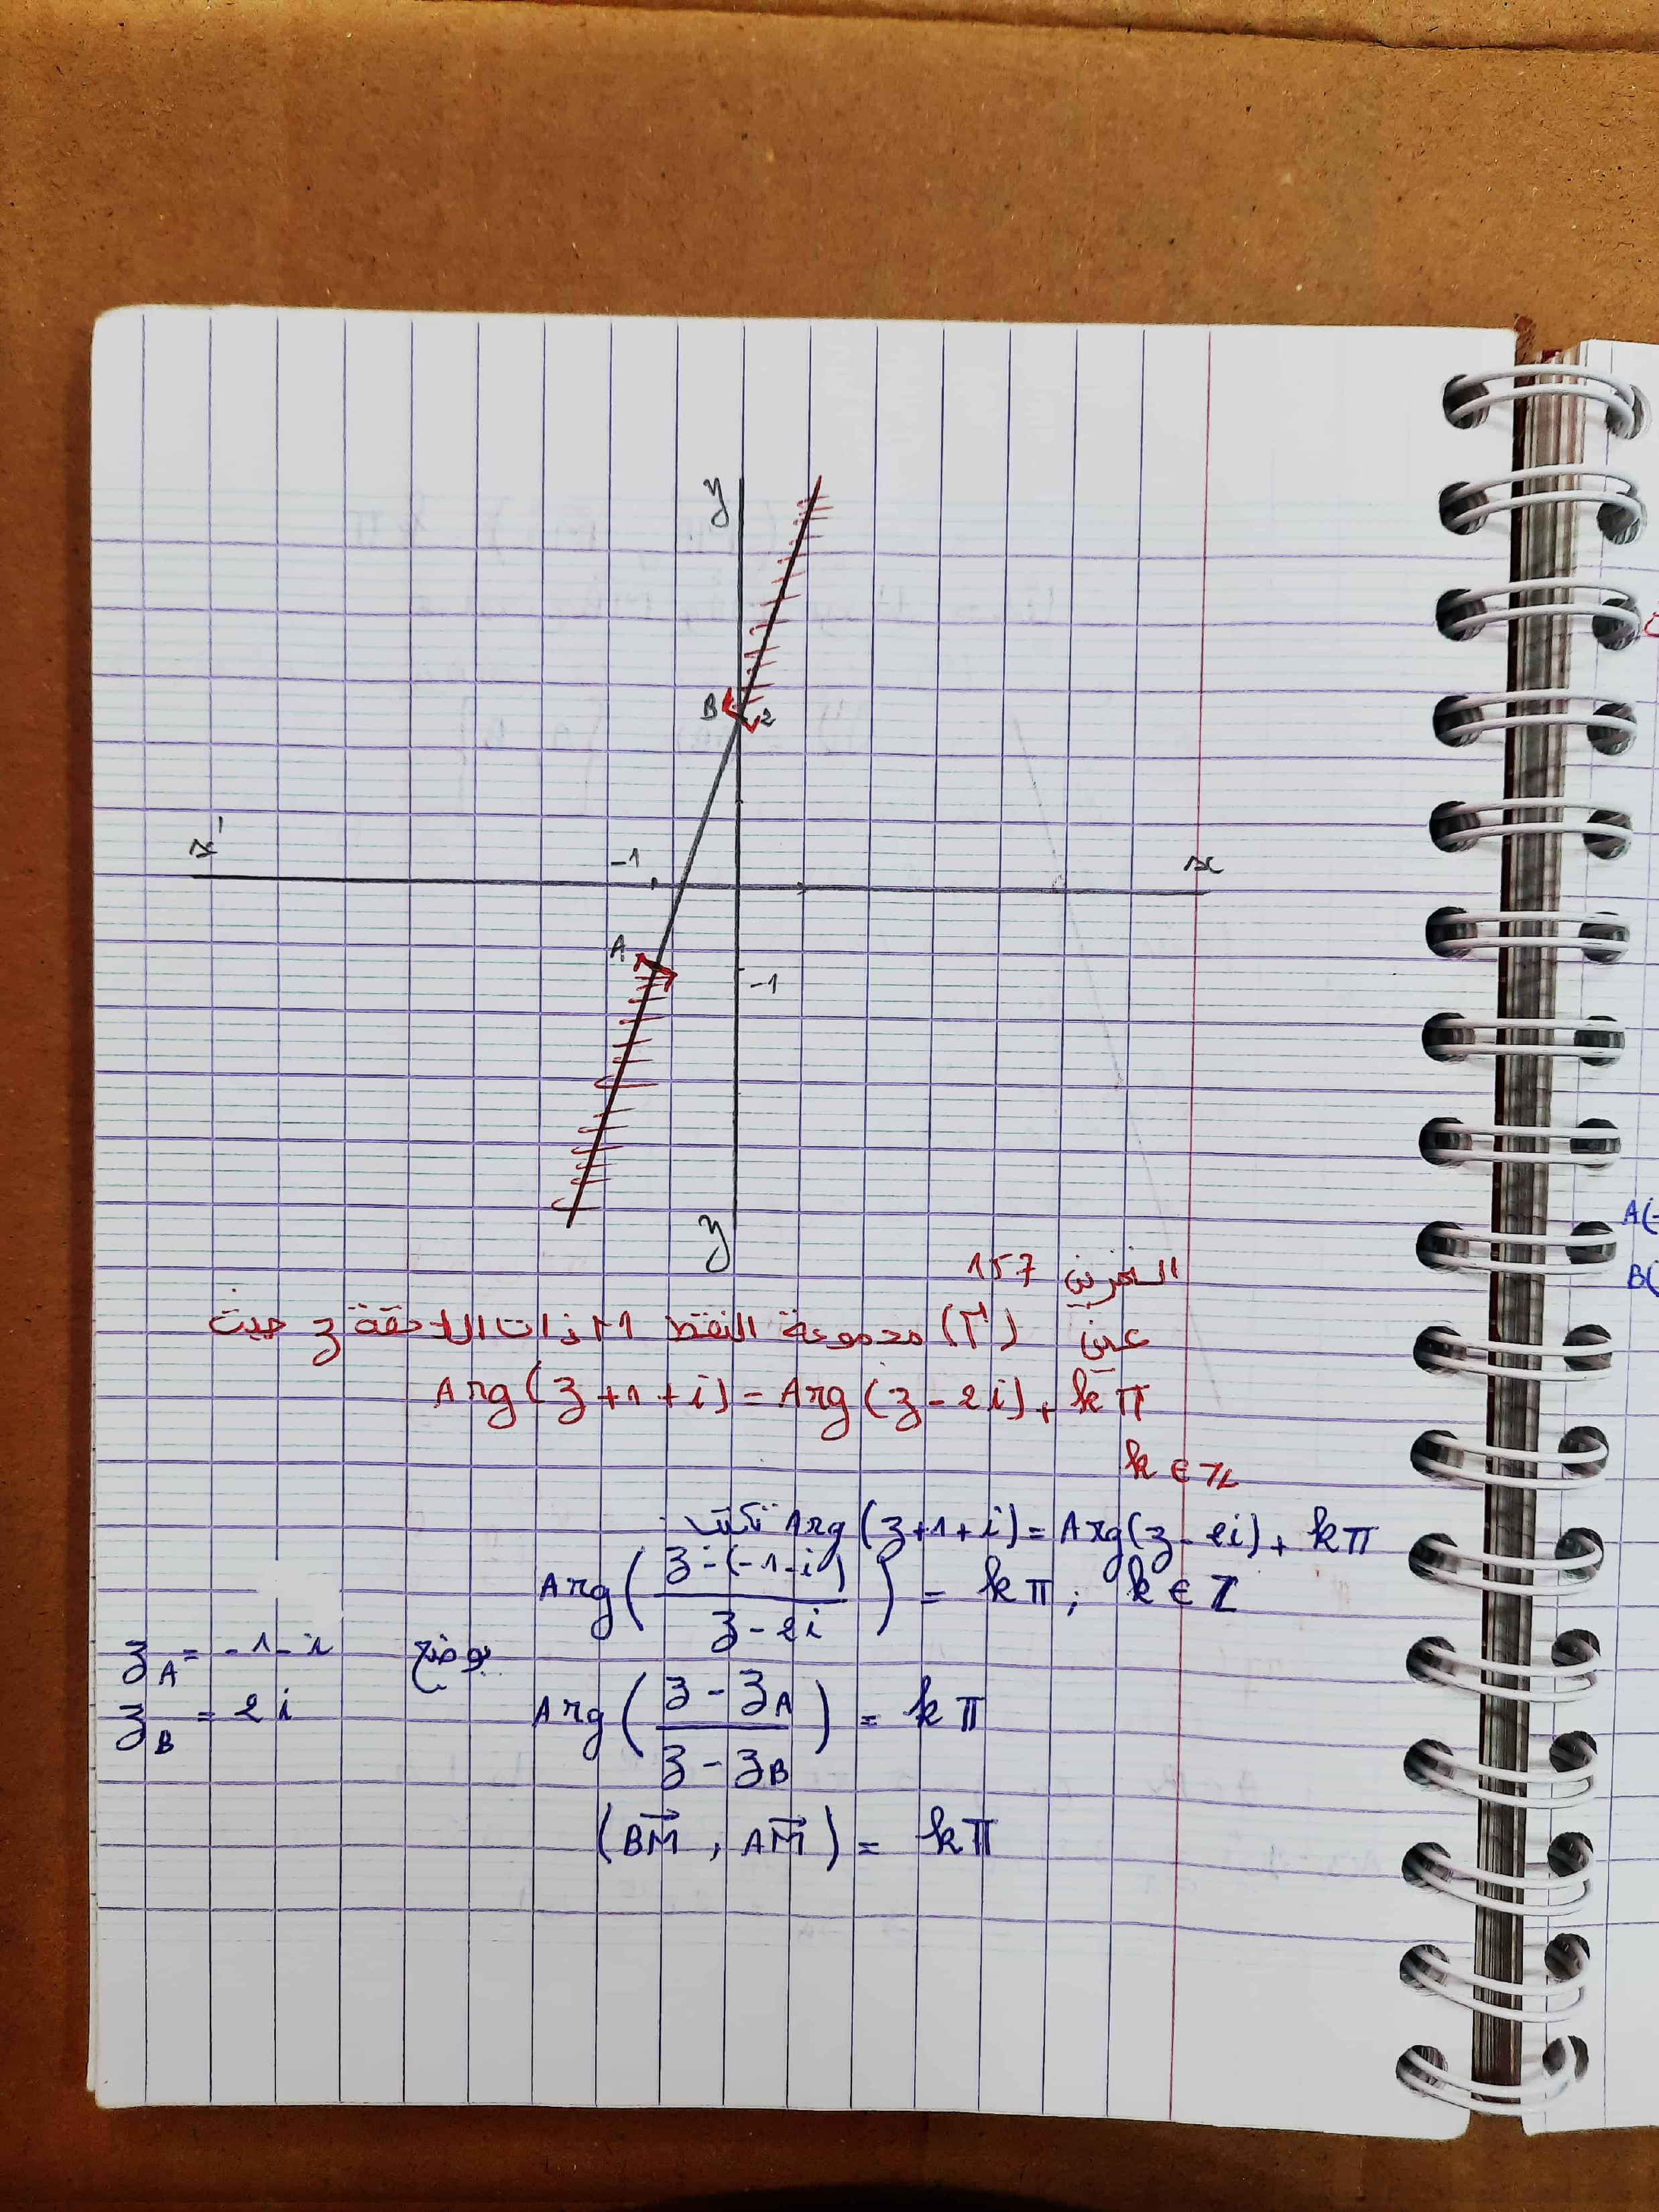 y
B 2
x'
-1
x
A
-1
y
التمرين 157
عين (Γ) مجموعة النقط M ذات اللاحقة z حيث
Arg(z+1+i) = Arg(z-2i) + kπ
k ∈ Z
Arg(z+1+i) = Arg(z-2i) + kπ تكتب
Arg((z-(-1-i))/(z-2i)) = kπ ; k ∈ Z
بوضع z_A = -1-i
z_B = 2i
Arg((z-z_A)/(z-z_B)) = kπ
(BM→, AM→) = kπ
A(-
B(